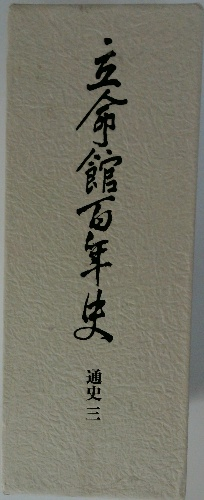 立命館百年史
通史 三